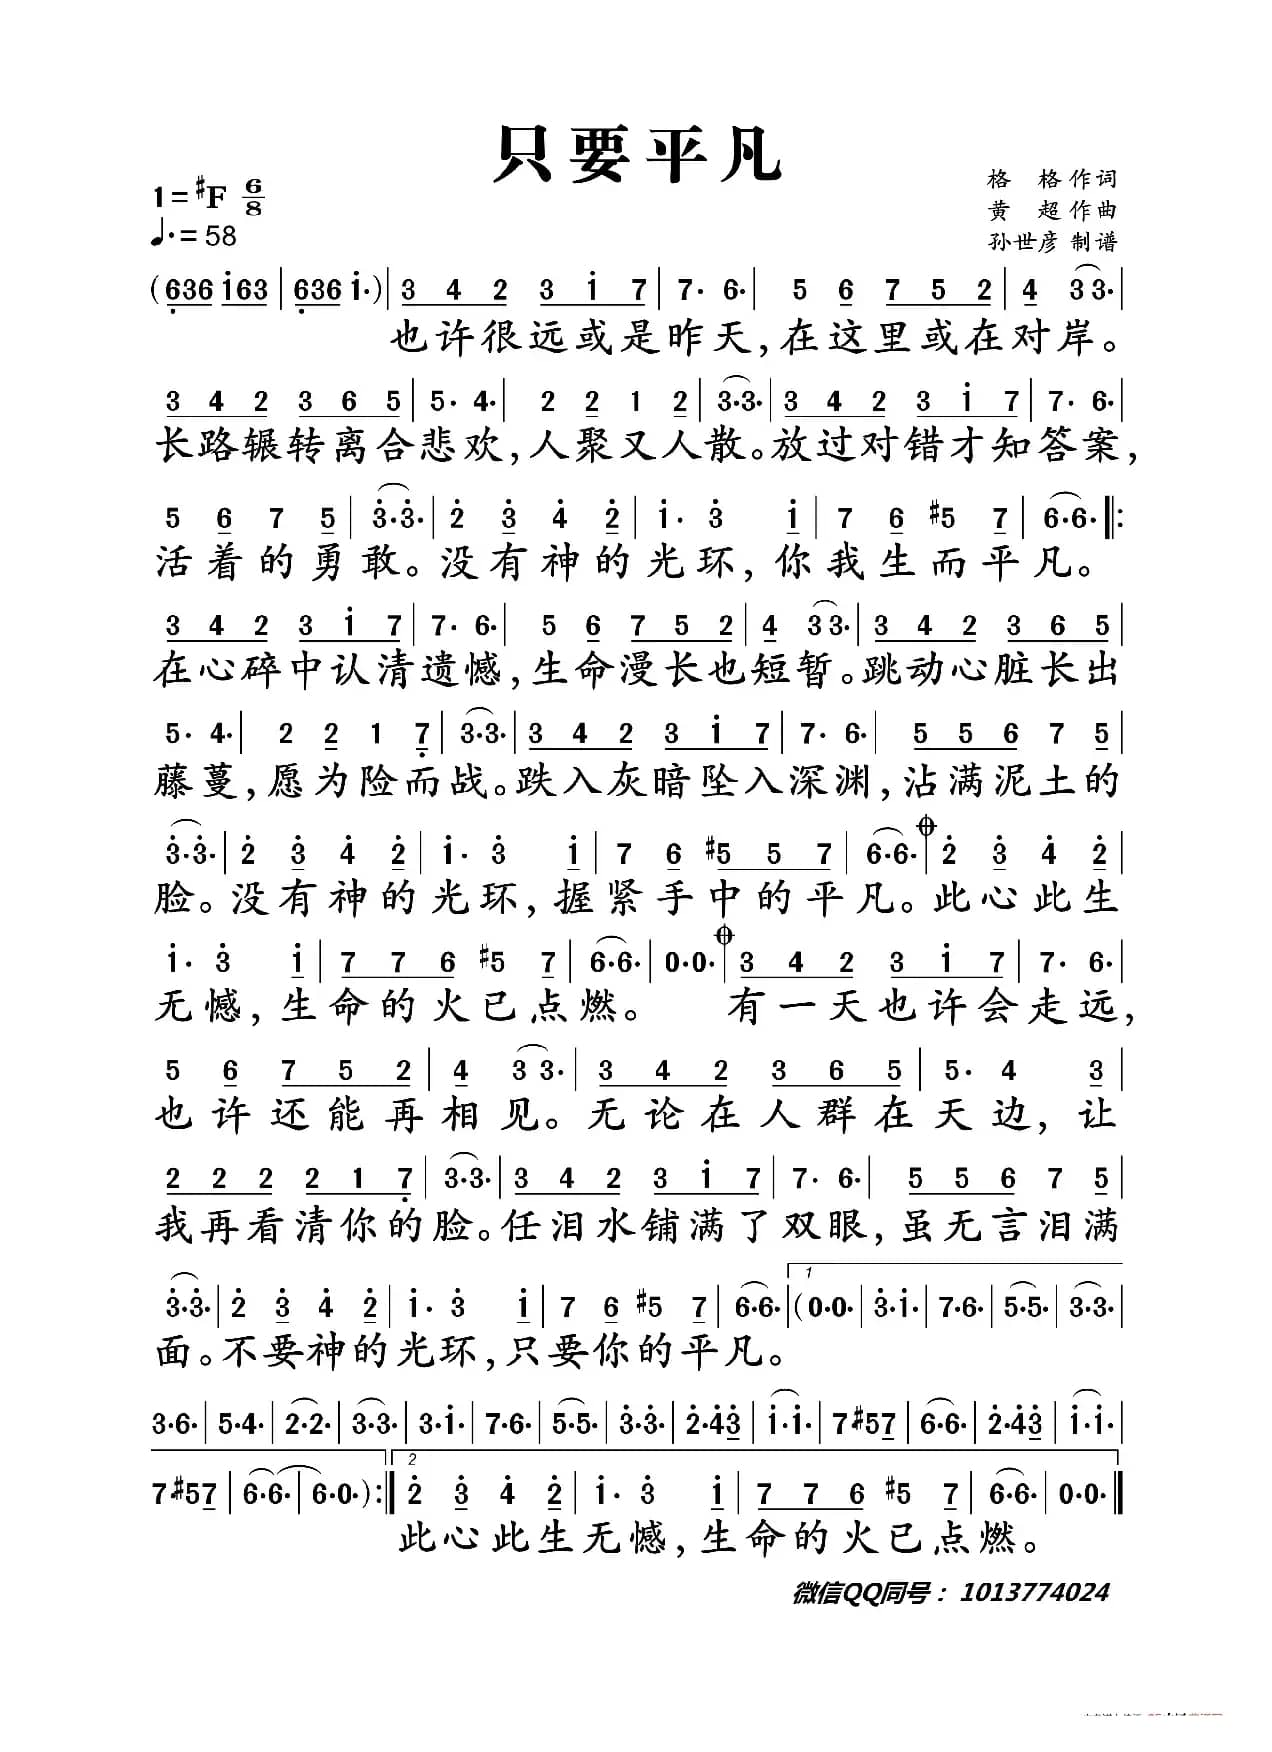 只要平凡
1=♯F 6/8
♩.=58
格 格 作词
黄 超 作曲
孙世彦 制谱
(636 i63 | 636 i·) | 3 4 2 3 i 7 | 7· 6· | 5 6 7 5 2 | 4 3 3· |
也许很远或是昨天，在这里或在对岸。
3 4 2 3 6 5 | 5· 4· | 2 2 1 2 | 3·3· | 3 4 2 3 i 7 | 7· 6· |
长路辗转离合悲欢，人聚又人散。放过对错才知答案，
5 6 7 5 | 3·3· | 2 3 4 2 | i· 3 i | 7 6 ♯5 7 | 6·6· ‖:
活着的勇敢。没有神的光环，你我生而平凡。
3 4 2 3 i 7 | 7· 6· | 5 6 7 5 2 | 4 3 3· | 3 4 2 3 6 5 |
在心碎中认清遗憾，生命漫长也短暂。跳动心脏长出
5· 4· | 2 2 1 7 | 3·3· | 3 4 2 3 i 7 | 7· 6· | 5 5 6 7 5 |
藤蔓，愿为险而战。跌入灰暗坠入深渊，沾满泥土的
3·3· | 2 3 4 2 | i· 3 i | 7 6 ♯5 5 7 | 6·6· | 2 3 4 2 |
脸。没有神的光环，握紧手中的平凡。此心此生
i· 3 i | 7 7 6 ♯5 7 | 6·6· | 0·0· | 3 4 2 3 i 7 | 7· 6· |
无憾，生命的火已点燃。 有一天也许会走远，
5 6 7 5 2 | 4 3 3· | 3 4 2 3 6 5 | 5· 4 3 |
也许还能再相见。无论在人群在天边，让
2 2 2 2 1 7 | 3·3· | 3 4 2 3 i 7 | 7· 6· | 5 5 6 7 5 |
我再看清你的脸。任泪水铺满了双眼，虽无言泪满
1
3·3· | 2 3 4 2 | i· 3 i | 7 6 ♯5 7 | 6·6· | (0·0· | 3·i· | 7·6· | 5·5· | 3·3· |
面。不要神的光环，只要你的平凡。
3·6· | 5·4· | 2·2· | 3·3· | 3·i· | 7·6· | 5·5· | 3·3· | 2·43 | i·i· | 7♯57 | 6·6· | 2·43 | i·i· |
2
7♯57 | 6·6· | 6·0·) :‖ 2 3 4 2 | i· 3 i | 7 7 6 ♯5 7 | 6·6· | 0·0· ‖
此心此生无憾，生命的火已点燃。
微信QQ同号：1013774024